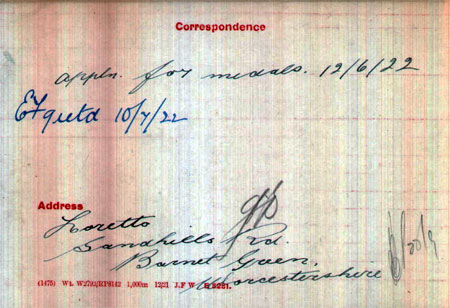 Correspondence
appln. for medals. 12/6/22
EF qustd 10/7/22
Address
Loretto
Sandhills Rd.
Barnet Green,
Worcestershire
(1475) Wt. 1,000m 12/21 J.F.W.